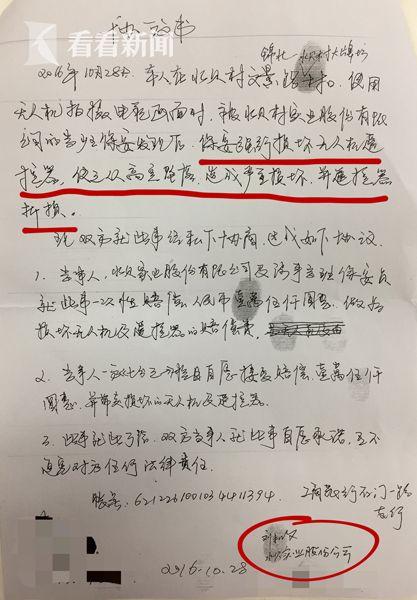 看看新闻
协议书
2016年10月28日 本人在北
使用
无人机拍摄电视画面时，被
村实业股份有限
公司的当班保安发现后，保安强行损坏无人机遥
控器，使无人机高空坠落，造成严重损坏，并遥控器
折损。
现双方就此事经私下协商，达成如下协议
1、当事人，
实业股份有限公司及
当班保安员
就此事一次性赔偿人民币壹万伍仟圆整，做为
损坏无人机及遥控器的赔偿费，
2、当事人
自愿接受赔偿，壹万伍仟
圆整，并带走损坏的无人机及遥控器。
3、此事就此了结，双方当事人就此事自愿承诺，互不
追究对方任何法律责任。
账号：
工商银行石门一路
支行
实业股份公司
2016-10-28